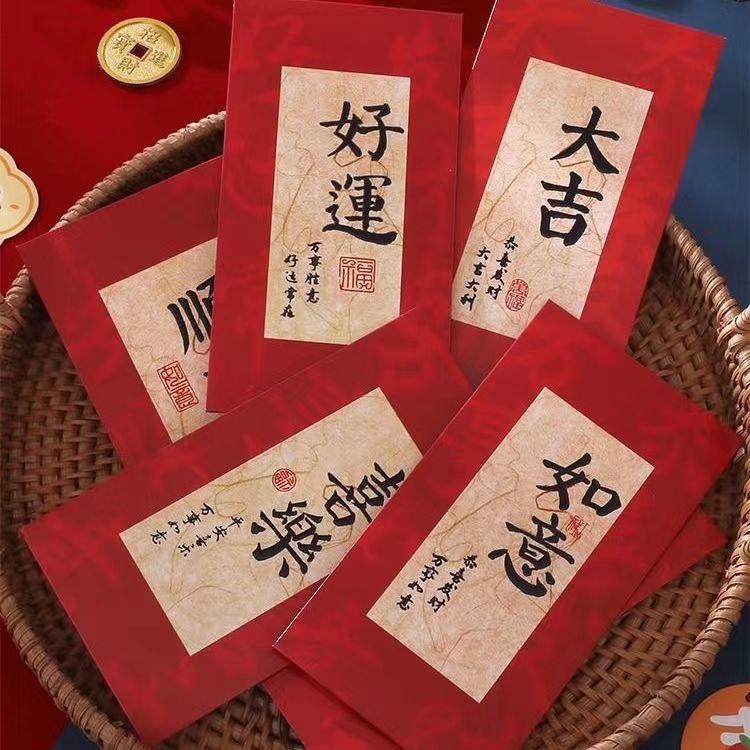 招財進寶
好運
万事胜意
好运常在
福
大吉
恭喜发财
大吉大利
順
喜樂
平安喜乐
万事如意
如意
恭喜发财
万事如意